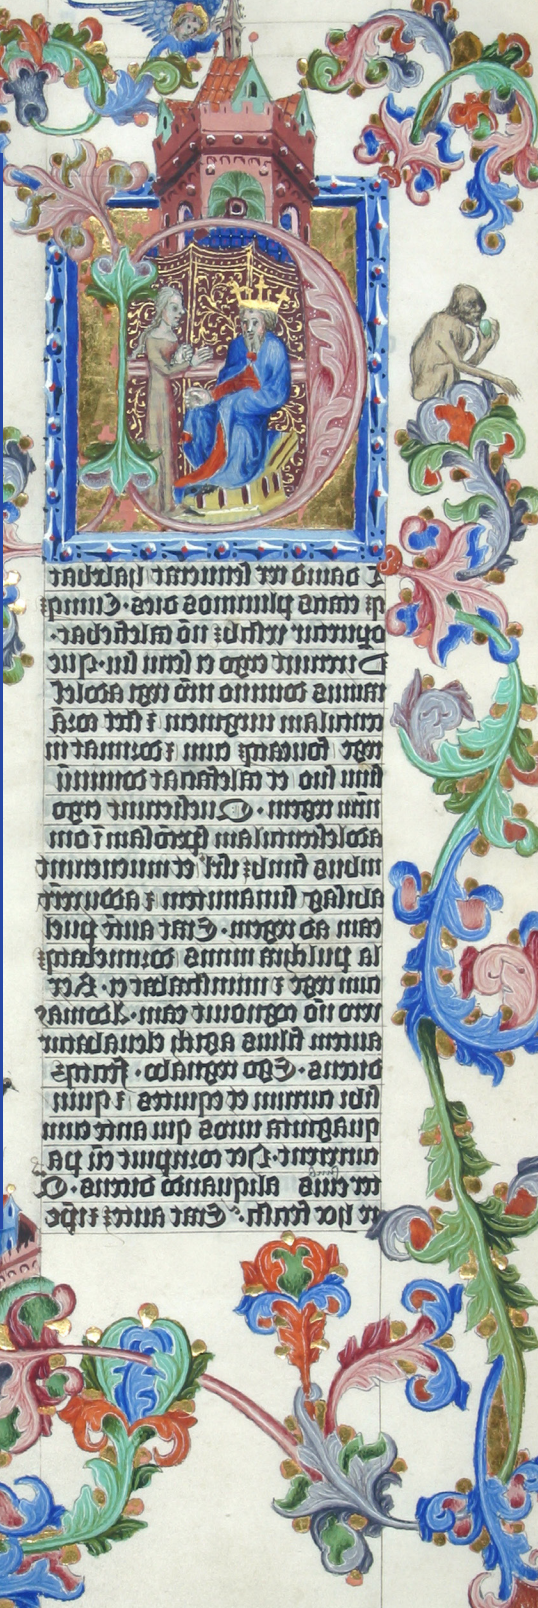 T dauid rex senuerat habebat
qꝫ etatis plurimos dies. Cumqꝫ
operiretur vestibꝫ nō calefiebat.
Dixerunt ergo ei serui sui. Que
ramus domino nr̄o regi adoles
centulam uirginem ⁊ stet corā
rege foueatqꝫ eum ⁊ dormiat in
sinu suo et calefaciat dominū
nr̄m regem. Quesierunt ergo
adolescentulam spēosam ī om
nibus finibꝫ isrl̄ et inuenerunt
abisag sunamitem ⁊ adduxert̄
eam ad regem. Erat aut̄ puel
la pulchra nimis dormiebatqꝫ
cum rege ⁊ ministrabat ei. Rex
vero nō cognouit eam. Adonias
autem filius agith eleuabatur
dicens. Ego regnabo. fecitqꝫ
sibi currum et equites ⁊ quin
quaginta viros qui ante eum
currerent. Nec corripuit eū pa
ter eius aliquando dicens. Q
re hoc fecisti. Erat autem ⁊ ip̄e